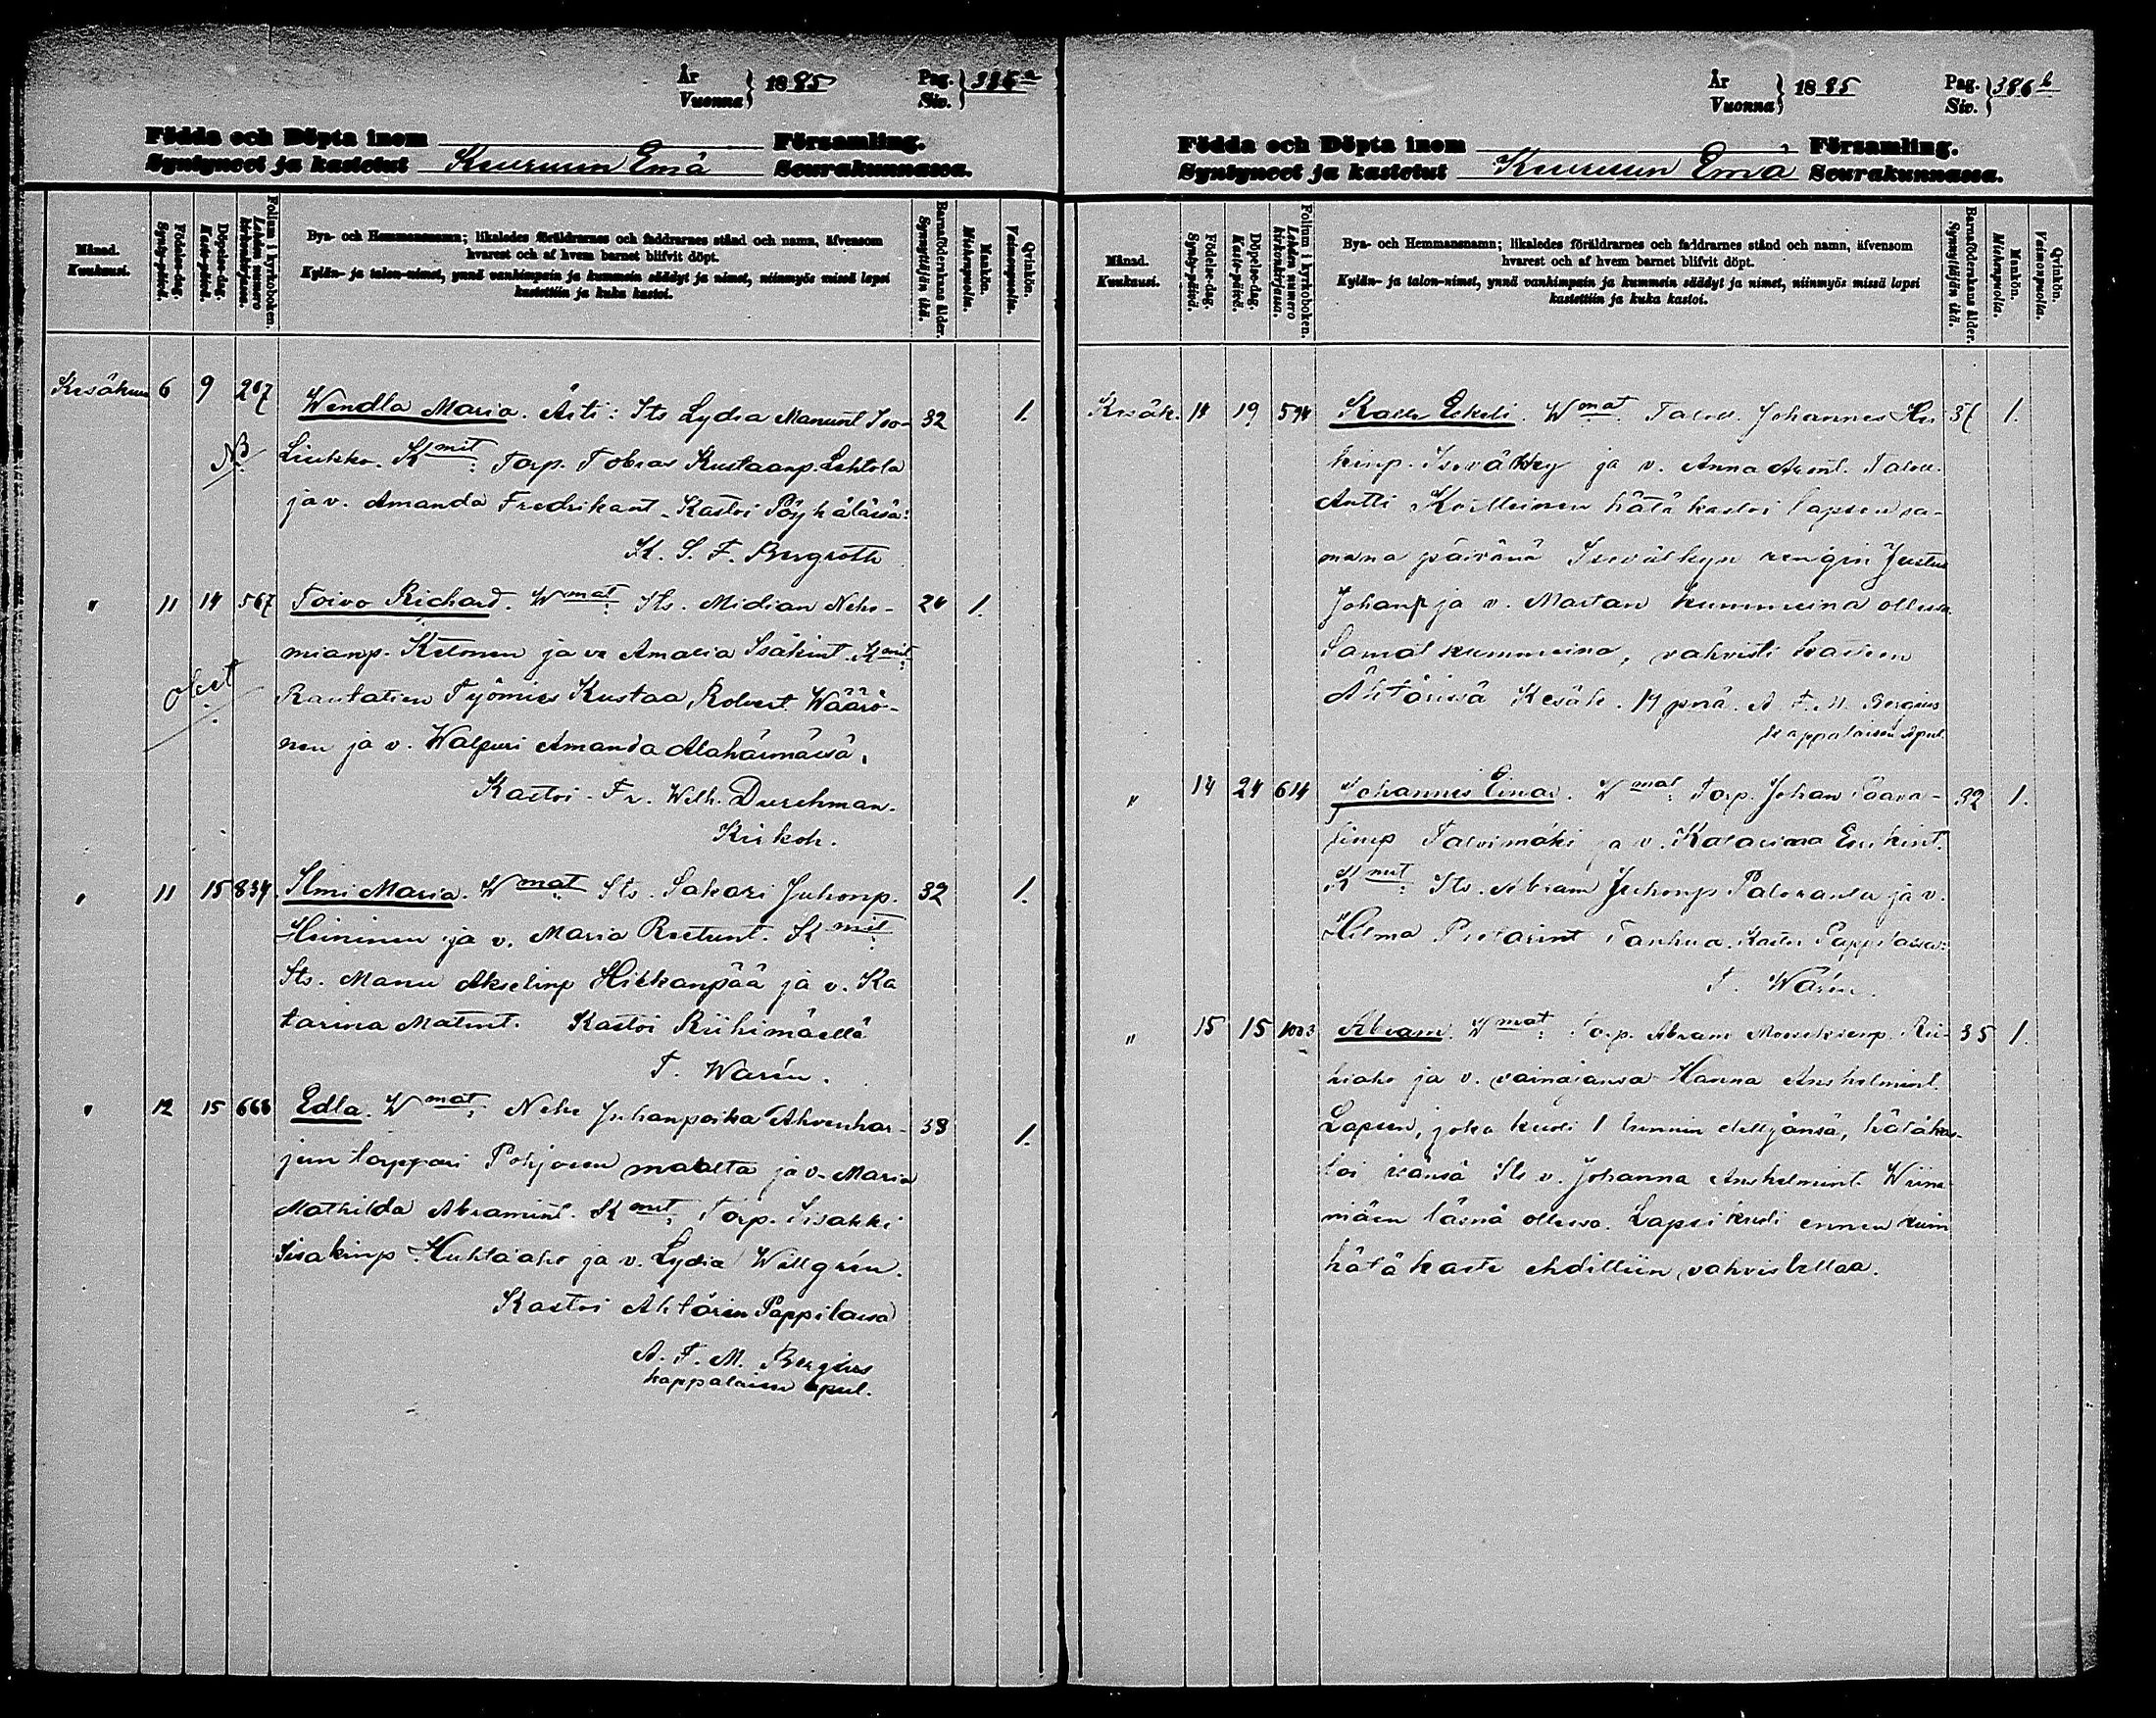 År
Vuonna } 1885
Pag.
Siv. } 386 a
Födda och Döpta inom Församling.
Syntyneet ja kastetut Kuuruun Emä Seurakunnassa.
Månad.
Kuukausi.
Födelse-dag.
Synty-päivä.
Döpelse-dag.
Kaste-päivä.
Folium i kyrkoboken.
Lehden numero
kirkonkirjassa.
Bya- och Hemmansnamn; likaledes föräldrarnes och faddrarnes stånd och namn, äfvensom
hvarest och af hvem barnet blifvit döpt.
Kylän- ja talon-nimet, ynnä vanhimpain ja kummein säädyt ja nimet, niinmyös missä lapsi
kastettiin ja kuka kastoi.
Barnaföderskans ålder.
Synnyttäjän ikä.
Mankön.
Miehenpuolia.
Qvinkön.
Vaimonpuolia.
Kesäkuu 6 9 267 Wendla Maria. Äiti: Its Lydia Manunt Iso- 32 1.
NB Liukko. K mit: Torp. Tobias Kustaanp. Lehtola
ja v. Amanda Fredrikant. Kastoi Pöyhälässä:
K. S. F. Bergroth
" 11 14 567 Toivo Richard. W mat: Its. Midian Nehe- 24 1.
mianp. Ketonen ja v. Amalia Isäkint. K mit:
Rautatien Työmies Kustaa Robert Wäärö-
nen ja v. Walpuri Amanda Alahäimässä.
Kastoi. Fr. Wilh. Durchman.
Kirkoh.
" 11 15 834. Ilmi Maria. W mat: Its. Sakari Juhonp. 32 1.
Heininen ja v. Maria Reetunt. K mit:
Its. Manu Akselinp Hiekanpää ja v. Ka
tarina Matint. Kastoi Riihimäellä
T. Warén.
" 12 15 668 Edla. W mat: Nehe Juhanpoika Ahvenhar- 38 1.
jun torppari Pohjosen maalta ja v. Maria
Mathilda Abramint. K mit: Torp. Iisakki
Iisakinp Huhtaaho ja v. Lydia Willgrén.
Kastoi Ähtärin Pappilassa
A. F. M. Bergius
kappalaisen apul.
År
Vuonna } 1885
Pag.
Siv. } 386 b
Födda och Döpta inom Församling.
Syntyneet ja kastetut Kuuruun Emä Seurakunnassa.
Månad.
Kuukausi.
Födelse-dag.
Synty-päivä.
Döpelse-dag.
Kaste-päivä.
Folium i kyrkoboken.
Lehden numero
kirkonkirjassa.
Bya- och Hemmansnamn; likaledes föräldrarnes och faddrarnes stånd och namn, äfvensom
hvarest och af hvem barnet blifvit döpt.
Kylän- ja talon-nimet, ynnä vanhimpain ja kummein säädyt ja nimet, niinmyös missä lapsi
kastettiin ja kuka kastoi.
Barnaföderskans ålder.
Synnyttäjän ikä.
Mankön.
Miehenpuolia.
Qvinkön.
Vaimonpuolia.
Kesäk. 14 19 594 Kalle Eekeli. W mat: Talol. Johannes 1.
ja v. Anna
Antti hätäkastoi lapsen sa-
mana päivänä Isevälkyn rengin Justus
Johanp ja v. Martan kummeina ollessa.
Samat kummeina, vahvisti kasteen
Ähtärissä Kesäk. 19 pnä. A. F. M. Bergius
kappalaisen apul.
" 14 24 614 Johannes Einar. W mat: Torp. Johan Taava- 32 1.
Talvimäki ja v. Katarina
K mit: Its. Abram Juhonp Paloranta ja v.
Hilma Pietarint Tanhua. Kastoi Pappilassa:
T. Warén.
" 15 15 1003 Abram. W mat: Torp. Abram Rii- 35 1.
hiaho ja v. vainajansa Hanna Anshelmint.
Lapsen, joka kuoli 1 tunnin elettyänsä, hätäkas-
toi Its v. Johanna Anshelmint. Wiina
mäen läsnä ollessa. Lapsi kuoli ennen kuin
hätäkaste ehdittiin vahvistettaa.